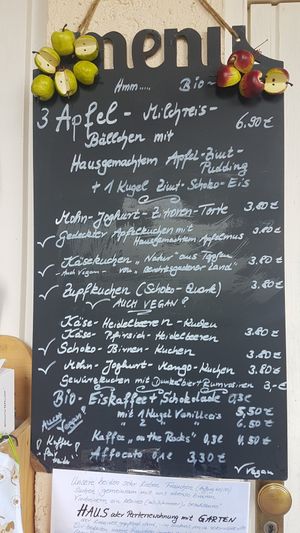 menü
Hmm..... Bio-
3 Apfel-Milchreis- 6,90€
Bällchen mit
Hausgemachtem Apfel-Zimt-
Pudding
+ 1 Kugel Zimt-Schoko-Eis
Mohn-Joghurt-Zitronen-Torte 3,80€
✓ Gedeckter Apfelkuchen mit 3,80€
Hausgemachtem Apfelmus
✓ Käsekuchen „Natur" aus Topfen 3,80€
- Auch Vegan - vom „Berchtesgadener Land"
✓ Zupfkuchen (Schoko-Quark) 3,80€
✓ AUCH VEGAN!
Käse-Heidelbeeren-Kuchen
Käse-Pfirsich-Heidelbeeren 3,80€
✓ Schoko-Birnen-Kuchen 3,80€
✓ Mohn-Joghurt-Mango-Kuchen 3,80€
Gewürzkuchen mit Dunkelbier+Rumrosinen 3,-€
Bio-Eiskaffee+Schokolade 0,3l
Auch Vegan! mit 1 Kugel Vanilleeis 5,50€
" 2 " " 6,50€
Kaffee „on the Rocks" 0,3l 4,80€
Affocato 3,30€
✓ Vegan
HAUS oder Parterrewohnung mit GARTEN